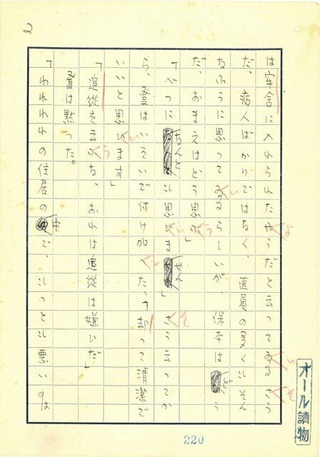 2
は宿舎に入れられたやうだと云ってゐるさう
だ。病人ばかりではなく、医員の多くもそん
なふうに思ってゐるらしいが、保本はどう
だ、おまえはどう思う」
「べつになんとも思いません」さう云ってか
ら、登はいそいで付け加へた、「却って清潔で
いいと思ひます」
「追従を云うな、おれは追従は嫌ひだ」
登は黙った。
「われわれの住居の中で、もっとも悪いのは
オール讀物
220